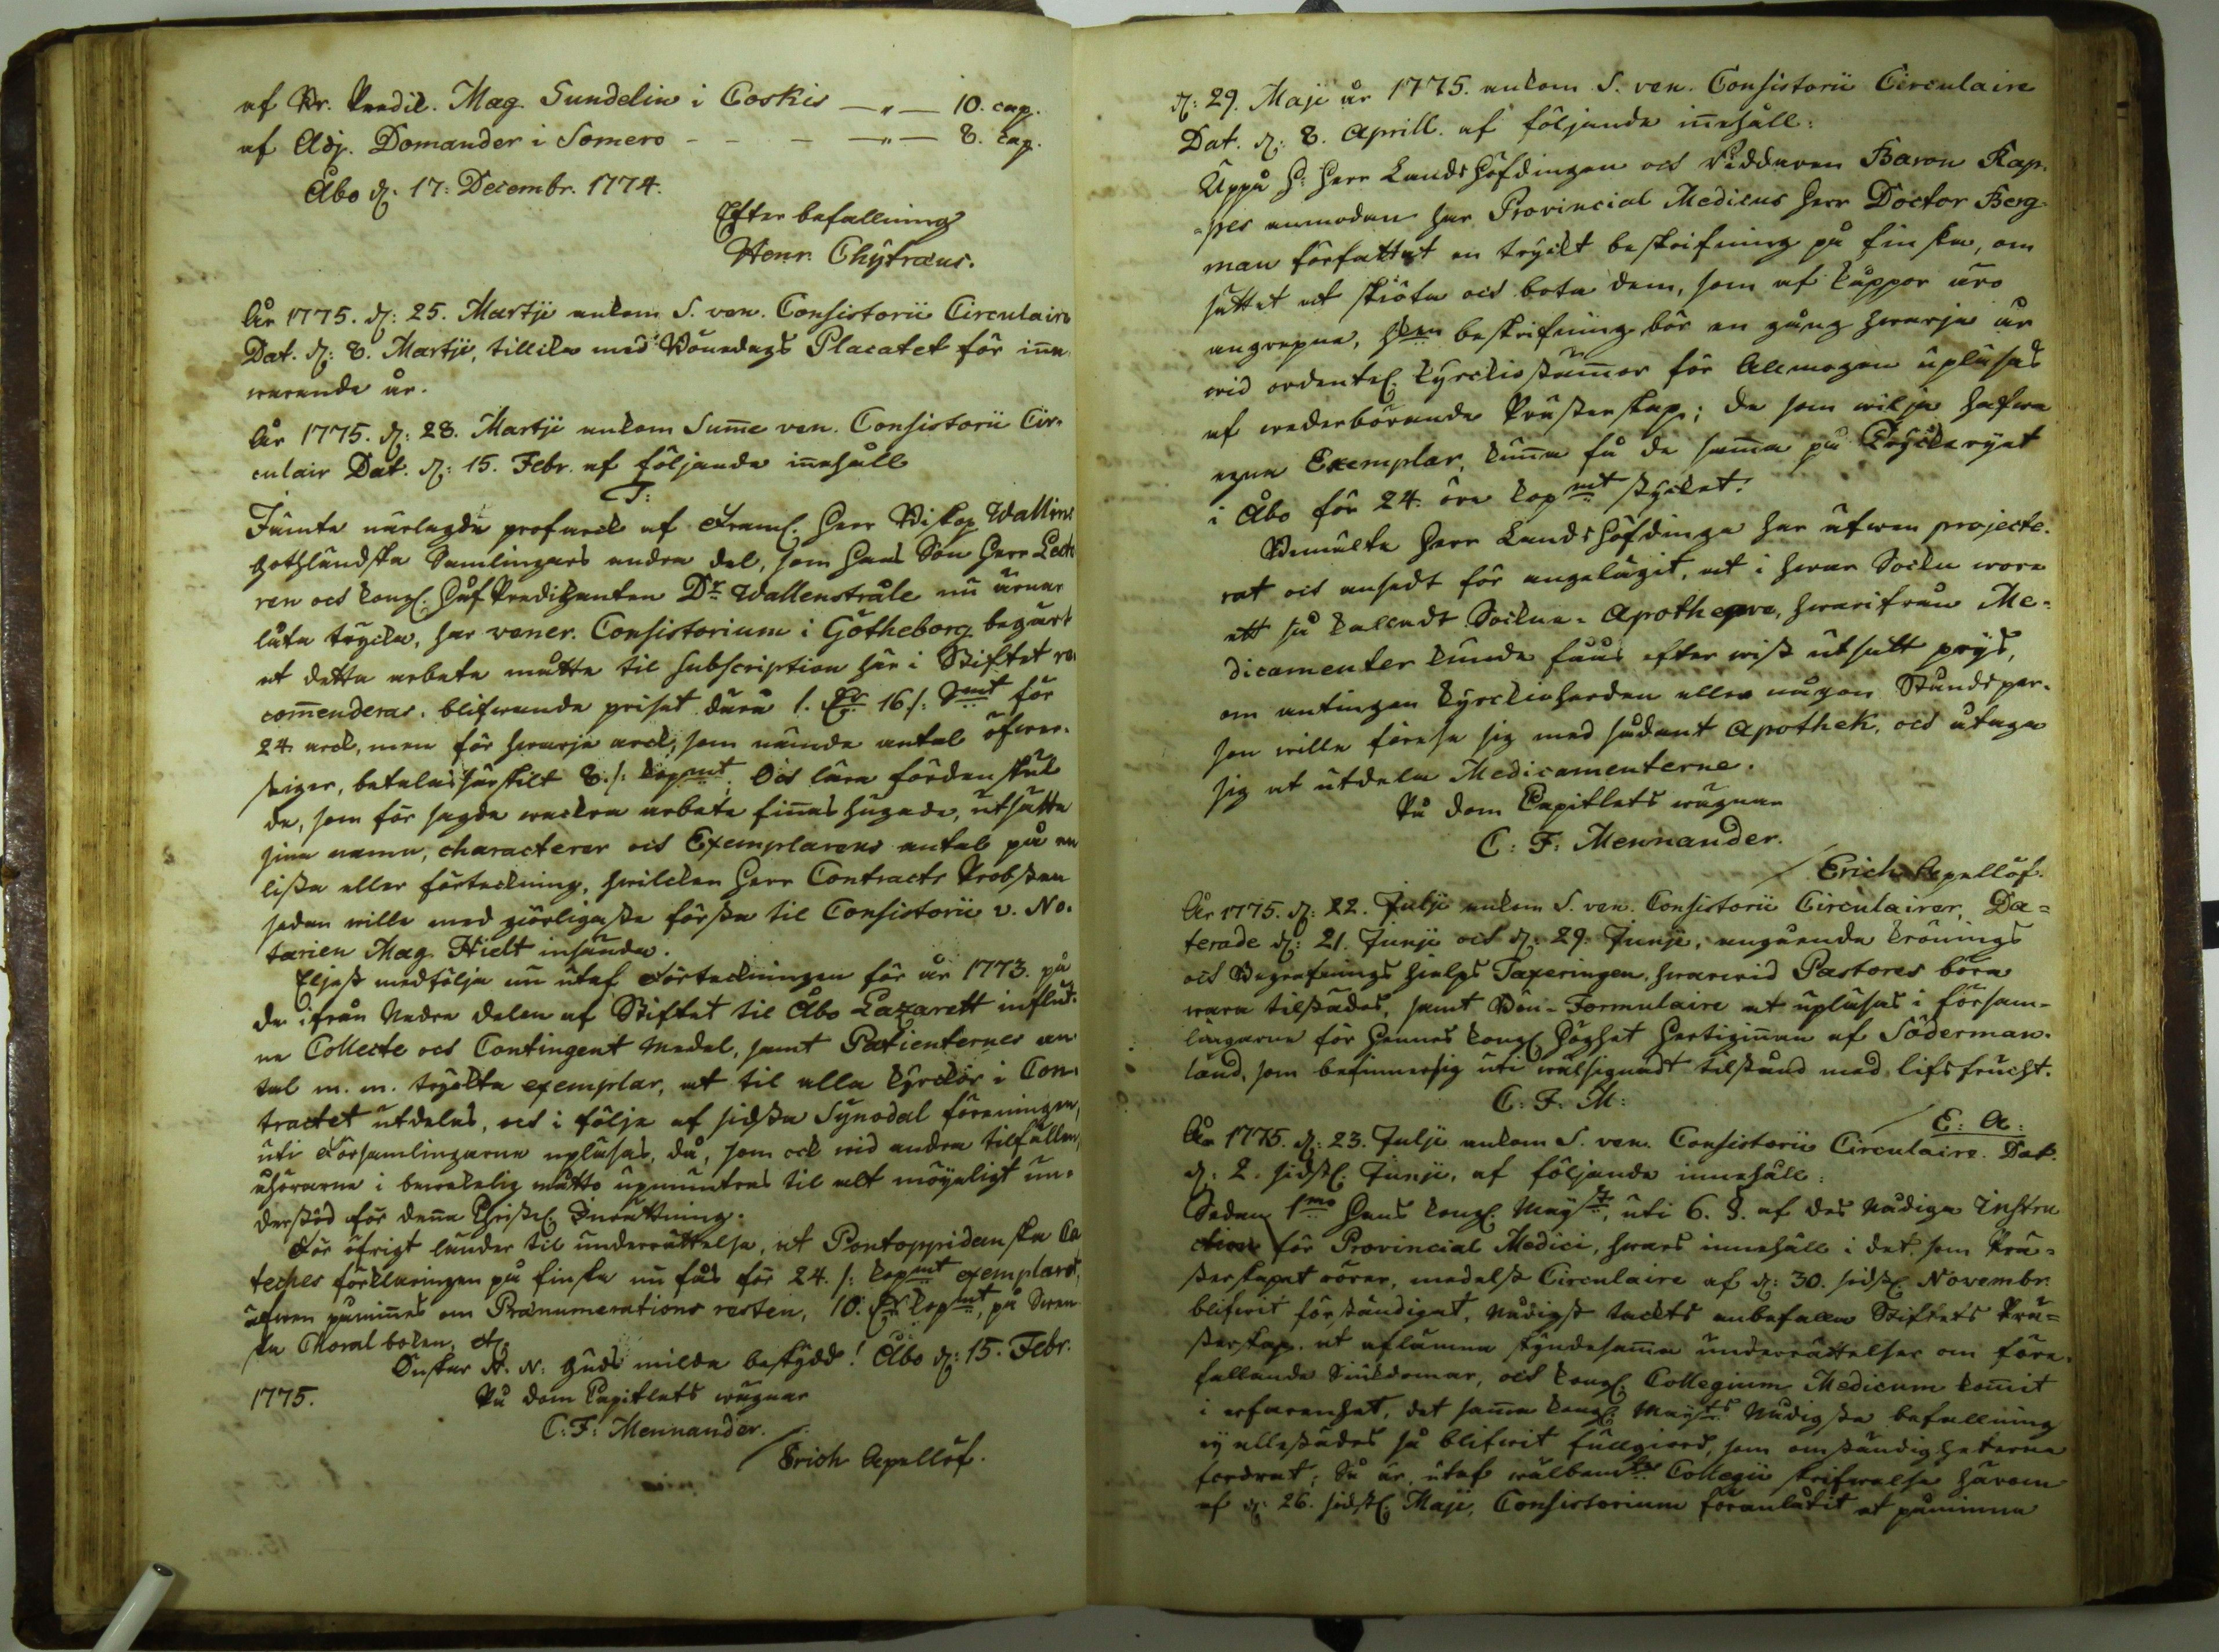 af Br. Predik. Mag. Sundelin i Coskis —"— 10. cap.
af Adj. Domander i Somero - - - —"— 8. cap.
Åbo d. 17. Decembr. 1774.
Efter befallning
Henr. Chytraeus.
År 1775. d: 25. Martji ankom S. ven. Consistorii Circulaire
Dat. d: 8. Martji, tillika med Bönedags Placatet för inne
warande år.
År 1775. d: 28. Martji ankom Summe ven. Consistorii Cir-
culair Dat. d: 15. Febr. af följande innehåll
T:
Jämte närlagde profarck af framl. Herr Biskop Wallins
Gothländska Samlingars andra del, som Hans Son Herr Lecto
ren och Kongl. HofPredikanten Dr. Wallenstråle nu ärnar
låta trycka, har vener. Consistorium i Götheborg begärt
at detta arbete måtte til subscription här i Stiftet re
commenderas, blifwande priset därå 1. Dr 16/: Smt för
24 arck, men för hwarje arck, som nämde antal öfwer-
stiger, betalas särskilt 8./: kopmt. Och lära fördenskul
de, som för sagde wackra arbete finnas hugade, utsätta
sina namn, characterer och Exemplarens antal på en
lista eller förteckning, hwilcken Herr Contracts Probsten
sedan wille med giörligaste första til Consistorii v. No-
tarien Mag. Hielt insända.
Eljest medfölja nu utaf Förteckningen för år 1773. på
de ifrån Nedra delen af Stiftet til Åbo Lazarett influt-
ne Collecte och Contingent Medel, samt Patienternes an
tal m. m. tryckta exemplar, at til alla kyrckor i Con-
tractet utdelas, och i följe af sidsta Synodal föreningen,
uti Församlingarne upläsas, då, som ock wid andra tilfällen,
åhörarne i bewekelig måtto upmuntras til alt möyeligt un-
derstöd för denna Christel. Inrättning.
För öfrigt länder til underrättelse, at Pontoppidanska Ca
teches förklaringen på finska nu fås för 24. /: kopmt exemplaret,
äfwen påminnes om Praenumerations resten, 10. Dr kopmt, på Swen
ska Choral boken, etc.
Önskar H. N. Guds milda beskydd! Åbo d: 15. Febr.
1775. På Dom Capitlets wägnar
C: F: Mennander.
Erich Apellöf.
d: 29. Maji år 1775. ankom S. ven. Consistorii Circulaire
Dat. d: 8. Aprill. af följande innehåll:
Uppå H: Herr Landshöfdingen och Riddaren Baron Rap-
pes anmodan har Provincial Medicus Herr Doctor Berg-
man författat en tryckt beskrifning på finska, om
sättet at skiöta och bota dem, som af kåppor äro
angrepne, hwilken beskrifning bör en gång hwarje år
wid ordentel. kyrckiostämmor för Allmogen upläsas
af wederbörande Prästerskap; de som wilja hafwa
egna Exemplar, kunna få de samma på Tryckeryet
i Åbo för 24. öre kopmt stycket.
Bemälte Herr Landshöfdinge har äfwen projecte-
rat och ansedt för angelägit, at i hwar Sockn wore
ett så kalladt Sockne-Apotheque, hwarifrån Me-
dicamenter kunde fåås efter wist utsatt prys,
om antingen kyrckioherden eller någon Stånds per-
son wille förese sig med sådant Apothek, och åtaga
sig at utdela Medicamenterne.
På Dom Capitlets wägnar
C: F: Mennander.
Erich Apellöf.
År 1775. d: 22. Julji ankom S. ven. Consistorii Circulairer, Da=
terade d: 21. Junji och d: 29. Junji, angående Krönings
och Begrafnings hielps Taxeringen, hwarwid Pastores böra
wara tilstädes, samt Bön-Formulaire at upläsas i försam-
lingarne för Hennes Kongl. Höghet Hertiginnan af Söderman-
land, som befinner sig uti wälsignadt tilstånd med lifs frucht.
C: F: M:
E: A:
År 1775. d: 23. Julji ankom S. ven. Consistorii Circulaire. Dat.
d: 2. sidstl. Junji, af följande innehåll:
Sedan 1mo Hans Kongl. Mayst. uti 6. §. af des Nådiga Instru
ction för Provincial Medici, hwars innehåll i det, som Prä=
sterskapet rörer, medelst Circulaire af d: 30. sidstl. Novembr.
blifwit förständigat, Nådigst täckts anbefalla Stiftets Prä=
sterskap, at aflämna skyndesamma underrättelser om före-
fallande Siukdomar, och Kongl. Collegium Medicum kommit
i erfarenhet, det samma Kongl. Mayts Nådigste befallning
ey allestädes så blifwit fullgiord, som omständigheterne
fordrat; Så är, utaf wälbemte Collegii skrifwelse härom
af d. 26. sidstl. Maji, Consistorium föranlåtit at påminna